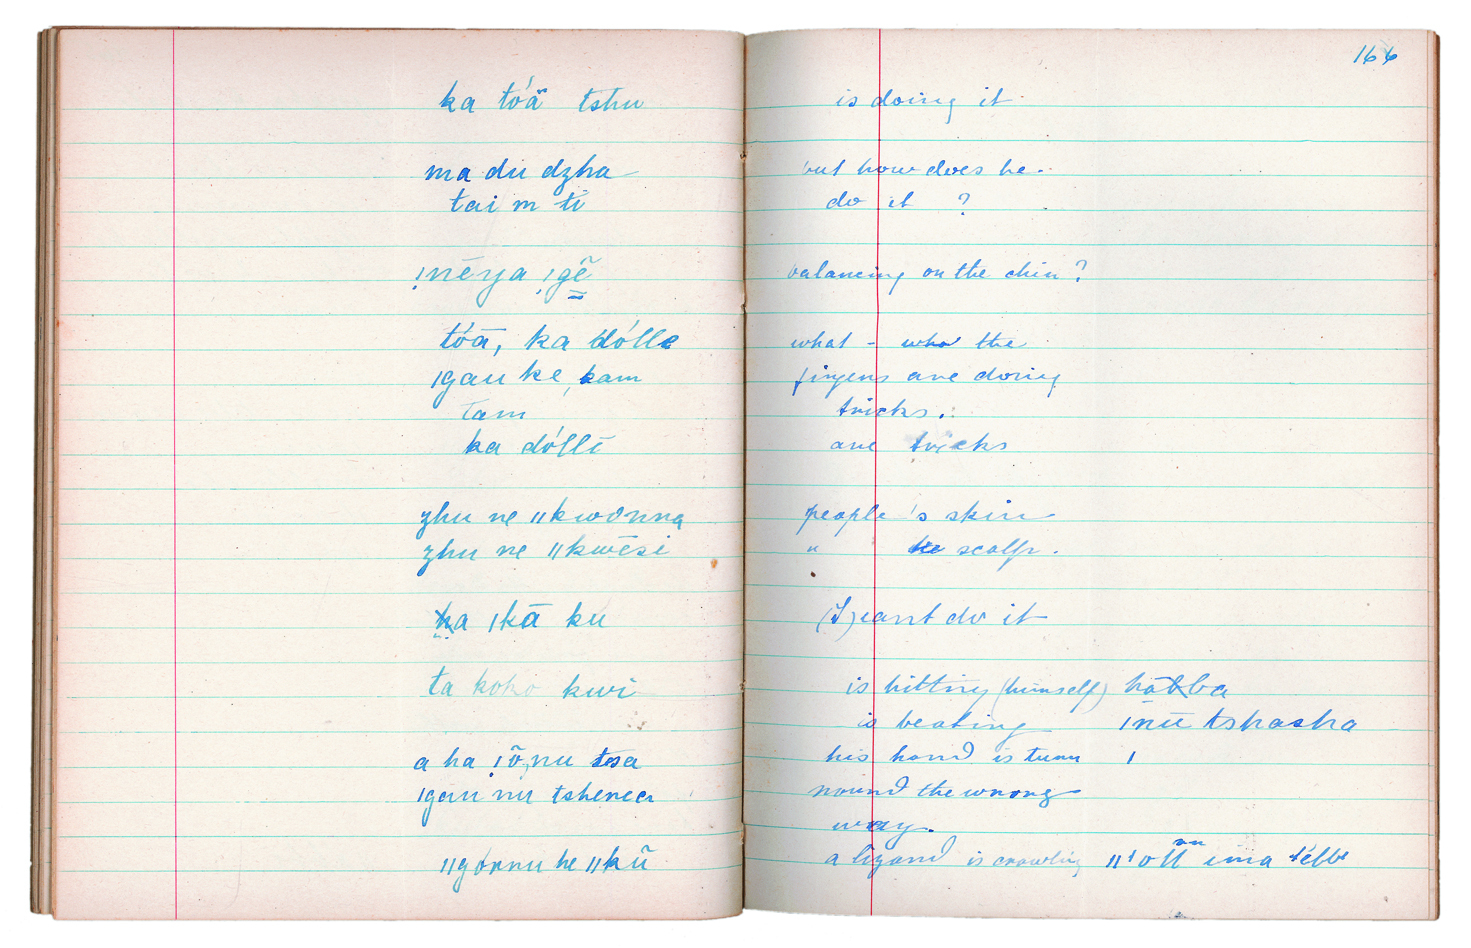 166
ka tóä tshu is doing it
ma du dzha but how does he
tai m ti do it ?
balancing on the chin ?
tóā, ka dólle what - who the
ǀgau ke kam fingers are doing
tam tricks.
ka dóllī are tricks
zhu ne ǁkwonna people's skin
zhu ne ǁkwēsi " scalp.
ǀkā ku (I) cant do it
ta koko kwi is hitting (himself)
is beating ǀnū tshasha
a ha tsa his hand is turn ǀ
ǀgau nu tshenea round the wrong
way.
ǁgórnu he ǁkũ a lizard is crawling